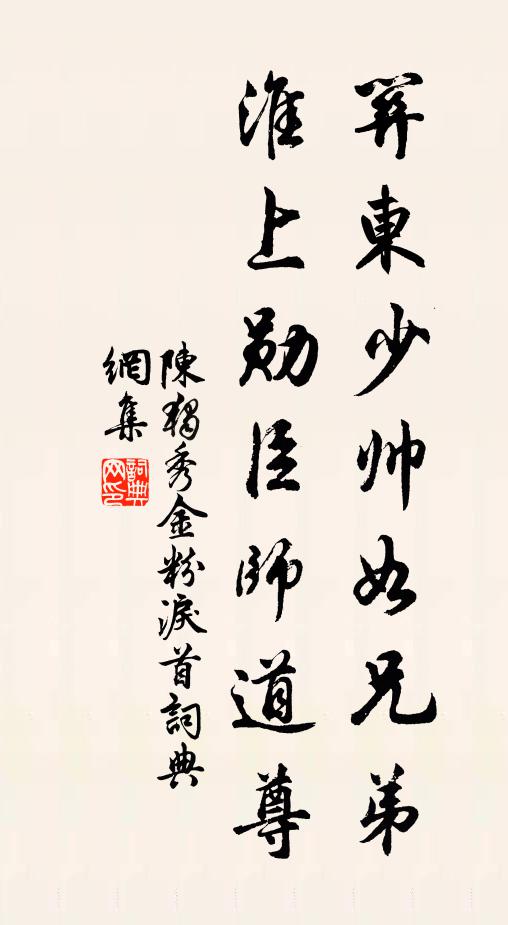 關東少帅如兄弟
淮上勛臣師道尊
陳獨秀金粉淚首詞典
網集
詞典網印